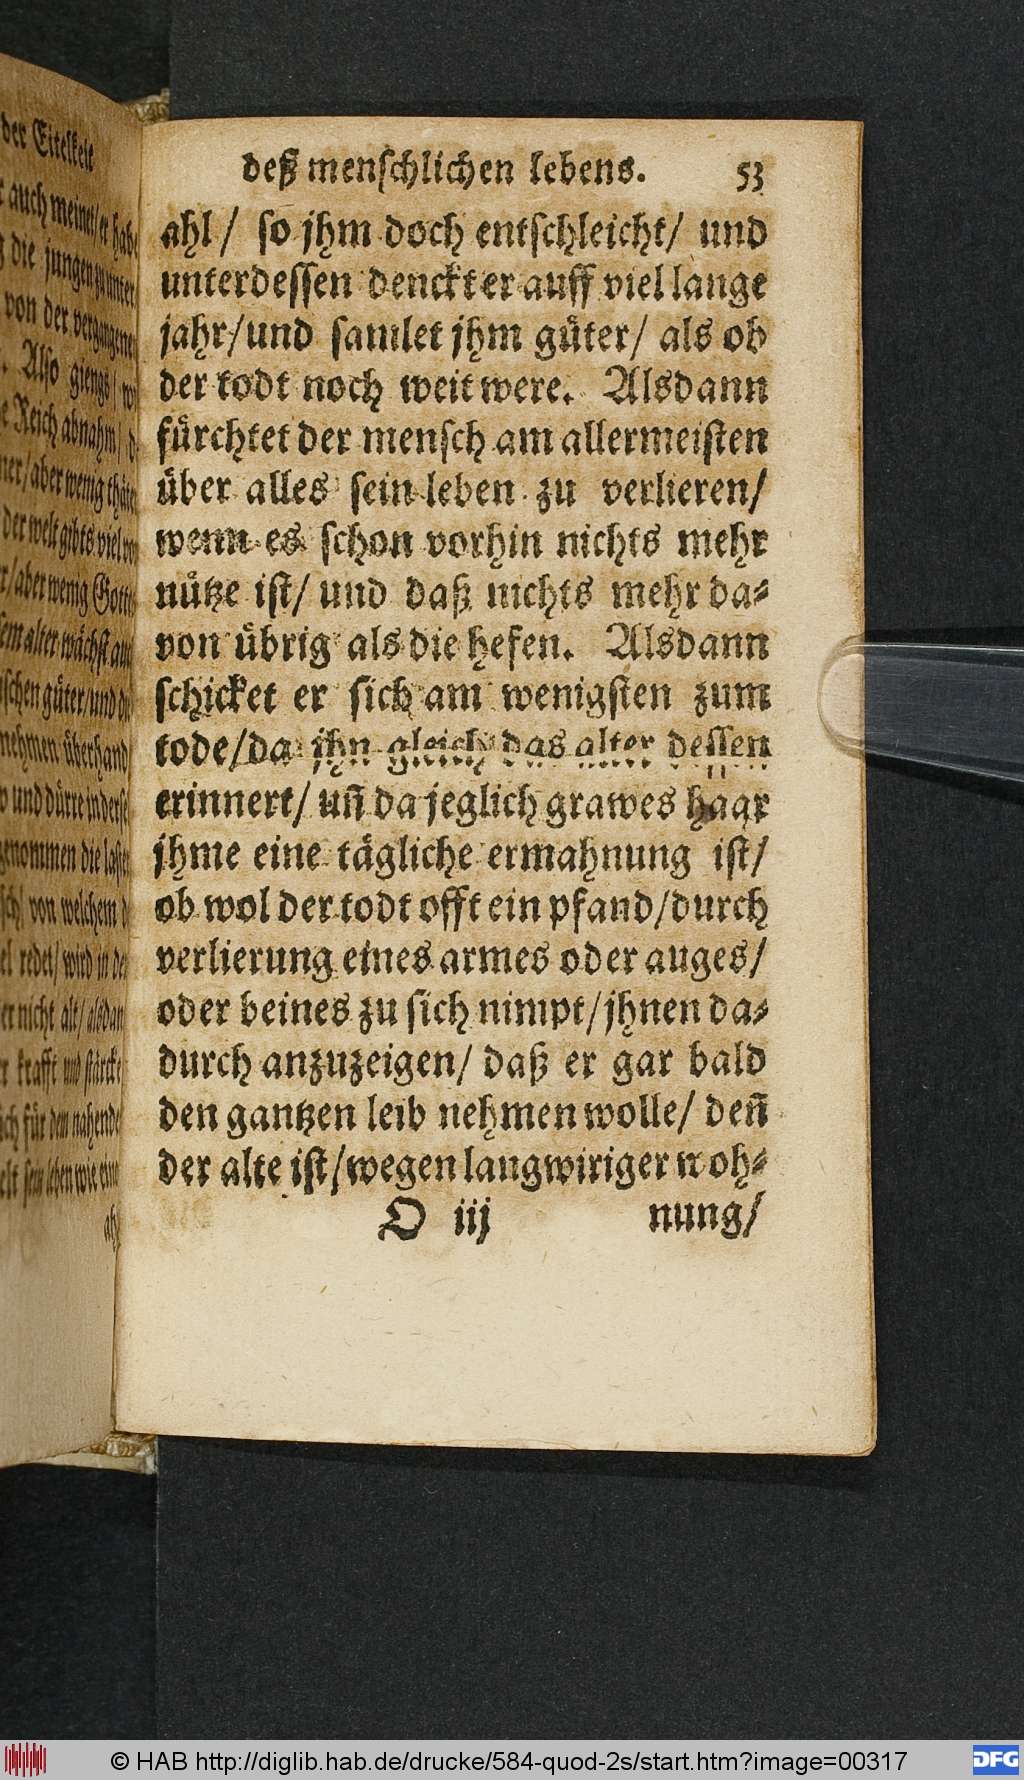 der Eitelkeit
r auch meinet/ er habe
g die jungen
von der vergangene
. Also giengs/ wi
e Reich abnahm/ d
ner/ aber wenig thäte
der welt gibts viel
r/ aber wenig Gotte
sem alter wächst auch
ischen güter/ und die
nehmen überhand
und dürre in derse
genommen die laster
sch/ von welchem d
el redet/ wird in de
er nicht alt/ alsdan
r krafft und stärcke
ich für dem nahende
elt sein leben wie eine
ahl
deß menschlichen lebens. 53
ahl/ so jhm doch entschleicht/ und
unterdessen denckt er auff viel lange
jahr/ und samlet jhm güter/ als ob
der todt noch weit were. Alsdann
fürchtet der mensch am allermeisten
über alles sein leben zu verlieren/
wenn es schon vorhin nichts mehr
nütze ist/ und daß nichts mehr da-
von übrig als die hefen. Alsdann
schicket er sich am wenigsten zum
tode/ da ihn gleich das alter dessen
erinnert/ uñ da jeglich grawes haar
jhme eine tägliche ermahnung ist/
ob wol der todt offt ein pfand/ durch
verlierung eines armes oder auges/
oder beines zu sich nimpt/ jhnen da-
durch anzuzeigen/ daß er gar bald
den gantzen leib nehmen wolle/ deñ
der alte ist/ wegen langwiriger woh-
O iij nung/
© HAB http://diglib.hab.de/drucke/584-quod-2s/start.htm?image=00317
DFG